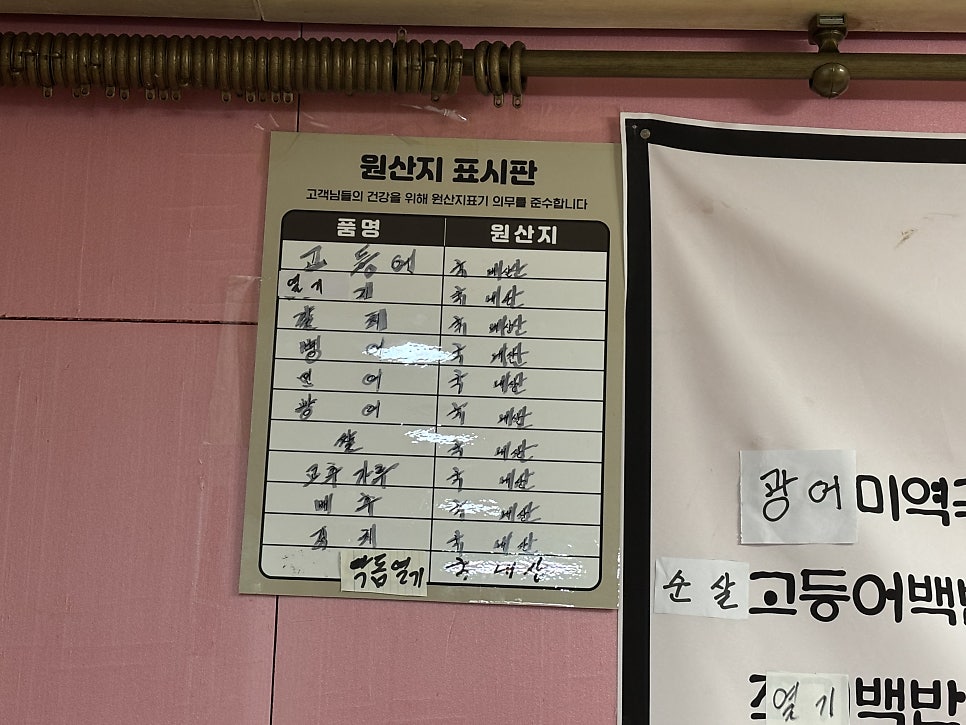 원산지 표시판
고객님들의 건강을 위해 원산지표기 의무를 준수합니다
품명 원산지
고등어 국내산
열기 국내산
갈치 국내산
병어 국내산
민어 국내산
광어 국내산
쌀 국내산
고추가루 국내산
배추 국내산
국내산
막돔열기 국내산
광어미역국
순살고등어백반
열기백반